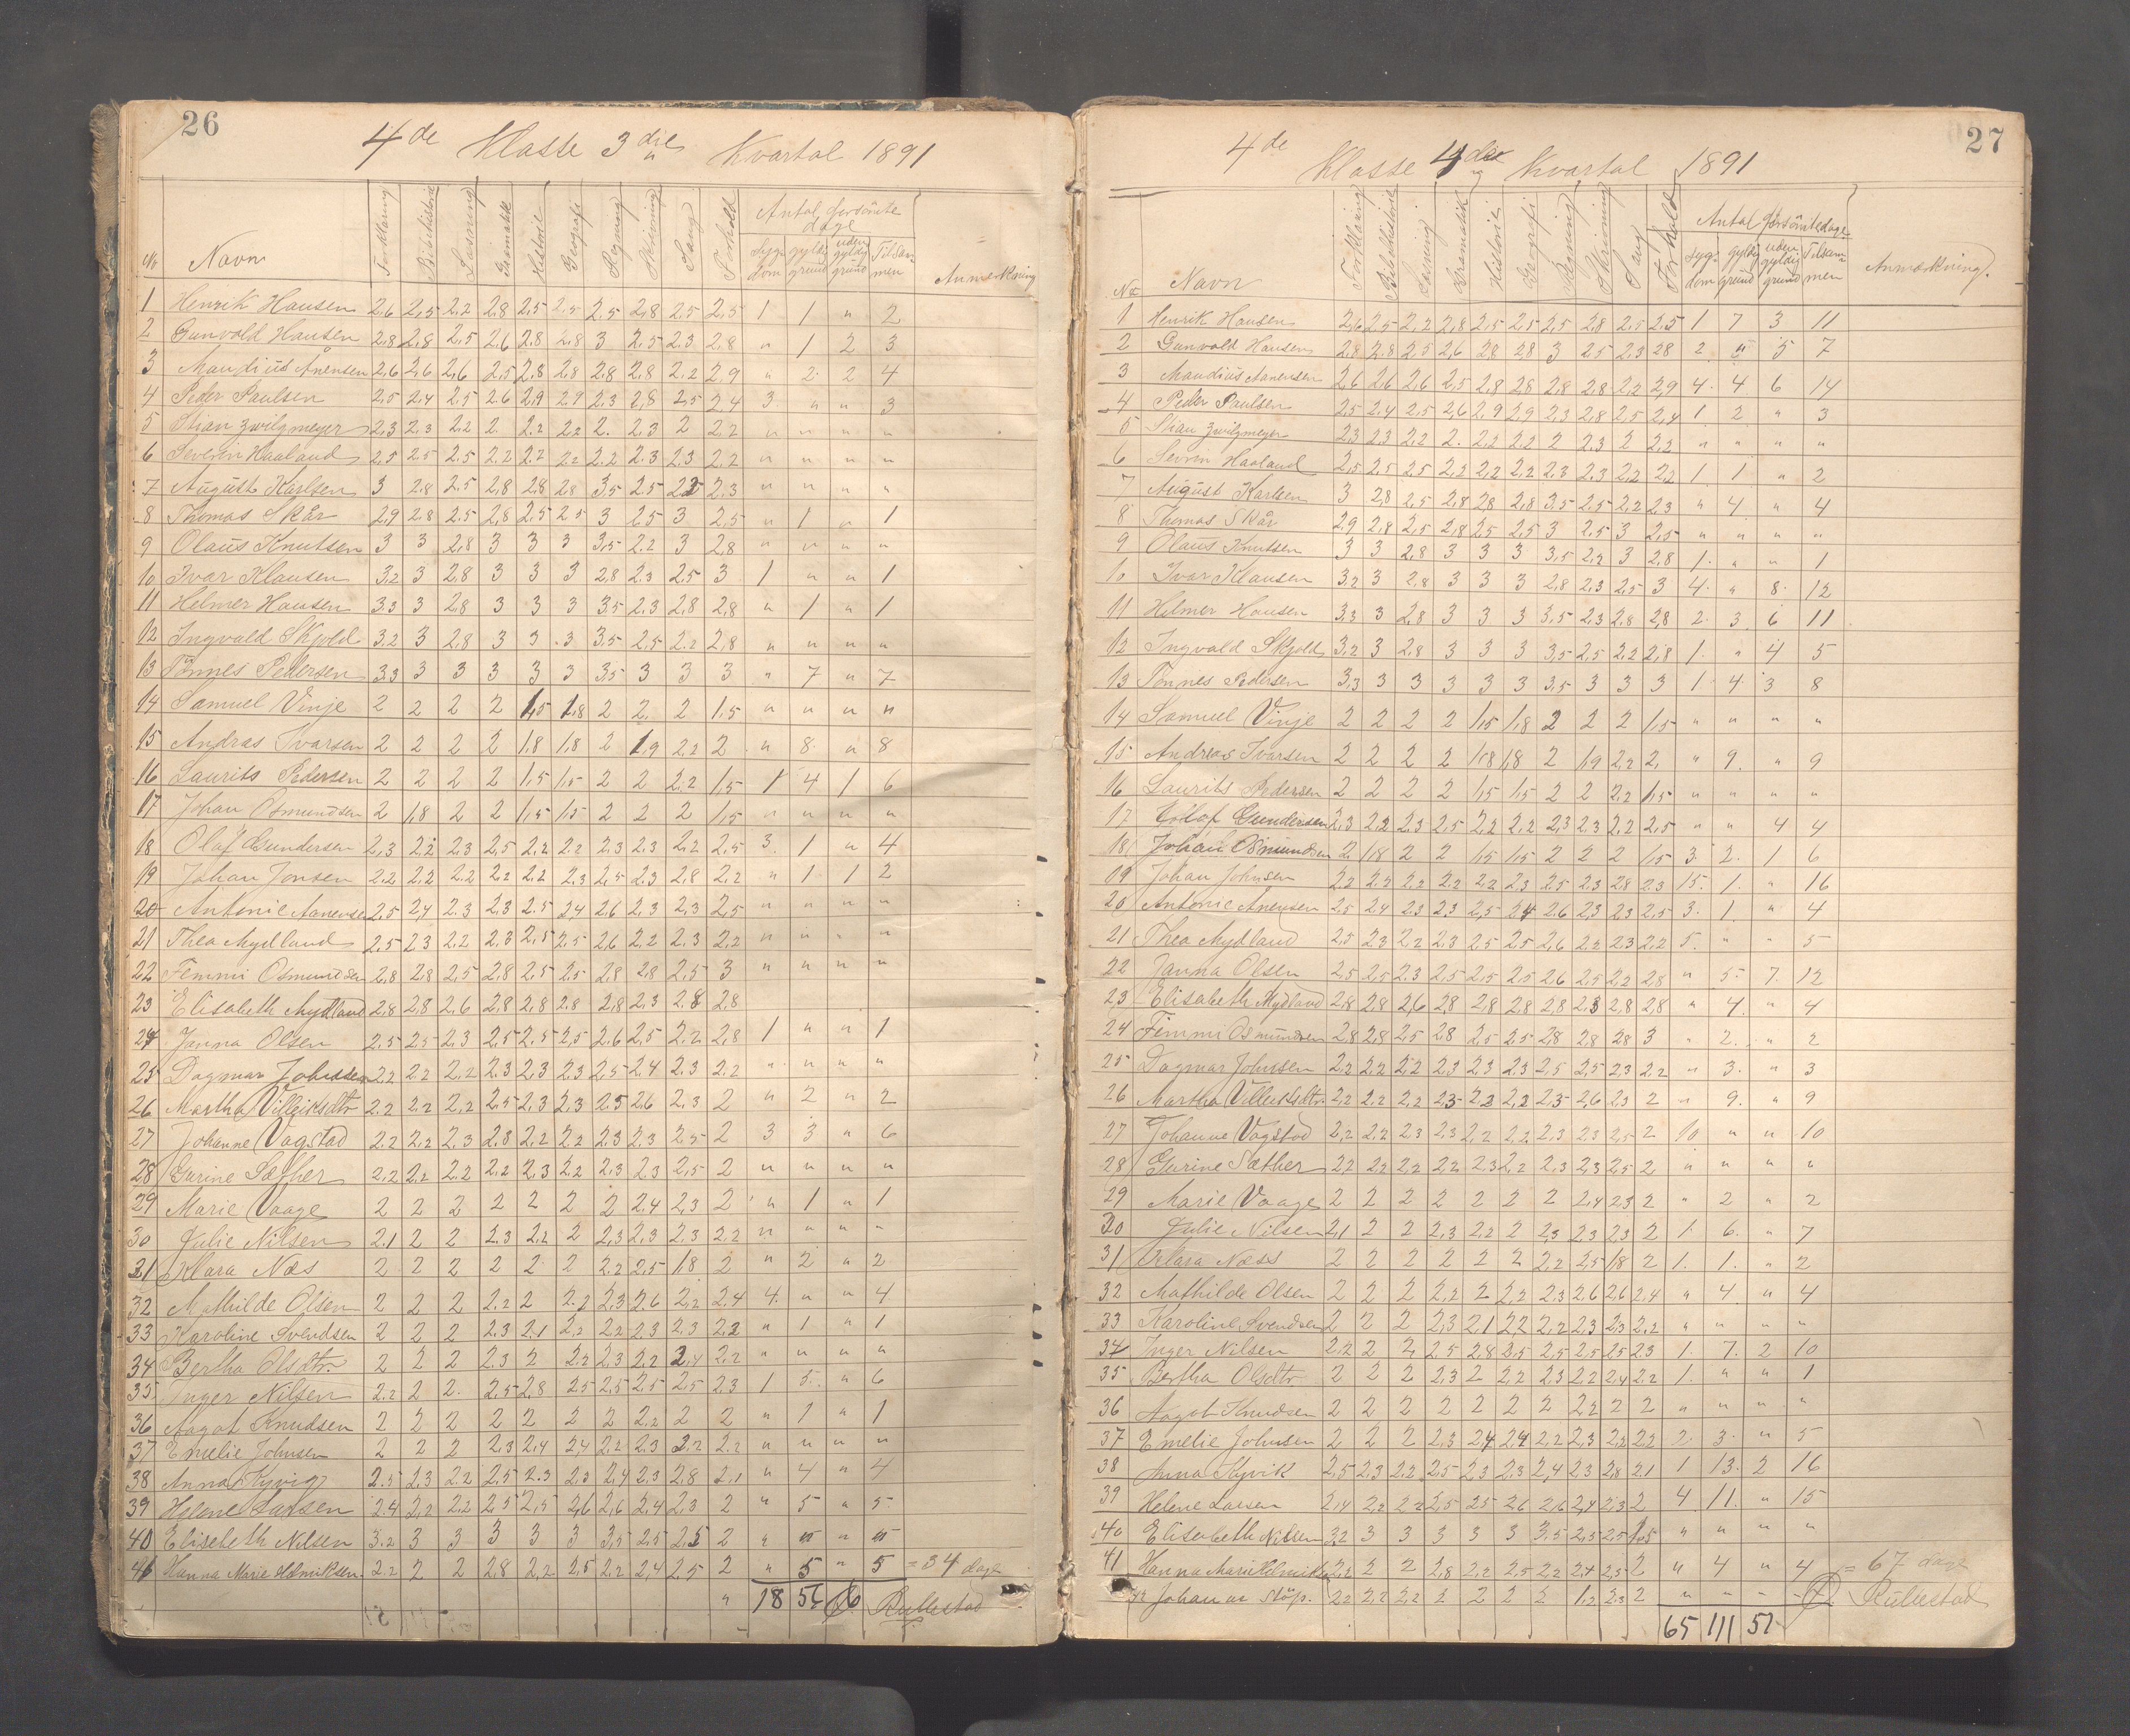 26
4de Klasse 3die Kvartal 1891
No Navn Forklaring Bibelhistorie Læsning Gramatik Historie Geografi Regning Skrivning Sang Forhold Antal forsömte dage Anmerkning
Sygdom gyldig grund uden gyldig grund Tilsammen
1 Henrik Hansen 2,6 2,5 2,2 2,8 2,5 2,5 2,5 2,8 2,5 2,5 1 1 " 2
2 Gunvald Hansen 2,8 2,8 2,5 2,6 2,8 2,8 3 2,5 2,3 2,8 " 1 2 3
3 Maudius Anensen 2,6 2,6 2,6 2,5 2,8 2,8 2,8 2,8 2,2 2,9 " 2 2 4
4 Peder Paulsen 2,5 2,4 2,5 2,6 2,9 2,9 2,3 2,8 2,5 2,4 3 " " 3
5 Stian Zwilgmeyer 2,3 2,3 2,2 2 2,2 2,2 2 2,3 2 2,2 " " " "
6 Severin Haaland 2,5 2,5 2,5 2,2 2,2 2,2 2,2 2,3 2,3 2,2 " " " "
7 August Karlsen 3 2,8 2,5 2,8 2,8 2,8 3,5 2,5 2,2 2,3 " " " "
8 Thomas Skår 2,9 2,8 2,5 2,8 2,5 2,5 3 2,5 3 2,5 " 1 " 1
9 Olaus Knutsen 3 3 2,8 3 3 3 3,5 2,2 3 2,8 " " " "
10 Ivar Klausen 3,2 3 2,8 3 3 3 2,8 2,3 2,5 3 1 " " 1
11 Helmer Hansen 3,3 3 2,8 3 3 3 3,5 2,3 2,8 2,8 " 1 " 1
12 Ingvald Skjold 3,2 3 2,8 3 3 3 3,5 2,5 2,2 2,8 " " " "
13 Tönnes Pedersen 3,3 3 3 3 3 3 3,5 3 3 3 " 7 " 7
14 Samuel Vinje 2 2 2 2 1,5 1,8 2 2 2 1,5 " " " "
15 Andras Ivarsen 2 2 2 2 1,8 1,8 2 1,9 2,2 2 " 8 " 8
16 Laurits Pedersen 2 2 2 2 1,5 1,5 2 2 2,2 1,5 1 4 1 6
17 Johan Osmundsen 2 1,8 2 2 1,5 1,5 2 2 2 1,5 " " " "
18 Olaf Gundersen 2,3 2,2 2,3 2,5 2,2 2,2 2,3 2,3 2,2 2,5 3 1 " 4
19 Johan Jonsen 2,2 2,2 2,2 2,2 2,2 2,3 2,5 2,3 2,8 2,2 " 1 1 2
20 Antonie Aanensen 2,5 2,4 2,3 2,3 2,5 2,4 2,6 2,3 2,3 2,5 " " " "
21 Thea Mydland 2,5 2,3 2,2 2,3 2,5 2,5 2,6 2,2 2,3 2,2 " " " "
22 Femmi Osmundsen 2,8 2,8 2,5 2,8 2,5 2,5 2,8 2,8 2,5 3 " " " "
23 Elisabeth Mydland 2,8 2,8 2,6 2,8 2,8 2,8 2,8 2,3 2,8 2,8
24 Janna Olsen 2,5 2,5 2,3 2,5 2,5 2,5 2,6 2,5 2,2 2,8 1 " " 1
25 Dagmar Johnsen 2,2 2,2 2,2 2,3 2,3 2,3 2,5 2,4 2,3 2,2 " " " "
26 Martha Villeiksdtr 2,2 2,2 2,2 2,5 2,3 2,3 2,5 2,6 2,3 2 " 2 " 2
27 Johanne Vagstad 2,2 2,2 2,3 2,8 2,2 2,2 2,3 2,3 2,5 2 3 3 " 6
28 Gurine Sæther 2,2 2,2 2,2 2,2 2,3 2,2 2,3 2,3 2,5 2 " " " "
29 Marie Vaage 2 2 2 2 2 2 2 2,4 2,3 2 " 1 " 1
30 Julie Nilsen 2,1 2 2 2,3 2,2 2 2,3 2,3 2,3 2,2 " " " "
31 Klara Næs 2 2 2 2 2 2 2,2 2,5 1,8 2 " 2 " 2
32 Mathilde Olsen 2 2 2 2,2 2 2,2 2,3 2,6 2,2 2,4 4 " " 4
33 Karoline Svendsen 2 2 2 2,3 2,1 2,2 2,2 2,3 2,3 2,2 " 1 " 1
34 Bertha Olsdtr 2 2 2 2,3 2 2,2 2,3 2,2 2,4 2,2 " " " "
35 Inger Nilsen 2,2 2 2 2,5 2,8 2,5 2,5 2,5 2,5 2,3 1 5 " 6
36 Aagot Knudsen 2 2 2 2 2 2 2 2,2 2 2 " 1 " 1
37 Emelie Johnsen 2 2 2 2,3 2,4 2,4 2,2 2,3 2,2 2,2 " " " "
38 Anna Kyvig 2,5 2,3 2,2 2,5 2,3 2,3 2,4 2,3 2,8 2,1 " 4 " 4
39 Helene Larsen 2,4 2,2 2,2 2,5 2,5 2,6 2,6 2,4 2,3 2 " 5 " 5
40 Elisebeth Nilsen 3,2 3 3 3 3 3 3,5 2,5 2,5 2 " " " "
41 Hanna Marie Helmiksen 2,2 2 2 2,8 2,2 2,5 2,2 2,4 2,5 2 " 5 " 5 = 34 dage
" 18 56 6 Rullestad
27
4de Klasse 4de Kvartal 1891
No Navn Forklaring Bibelhistorie Læsning Gramatik Historie Geografi Regning Skrivning Sang Forhold Antal forsömte dage Anmærkning
Sygdom gyldig grund uden gyldig grund Tilsammen
1 Henrik Hansen 2,6 2,5 2,2 2,8 2,5 2,5 2,5 2,8 2,5 2,5 1 7 3 11
2 Gunvald Hansen 2,8 2,8 2,5 2,6 2,8 2,8 3 2,5 2,3 2,8 2 " 5 7
3 Maudius Aanensen 2,6 2,6 2,6 2,5 2,8 2,8 2,8 2,8 2,2 2,9 4 4 6 14
4 Peder Paulsen 2,5 2,4 2,5 2,6 2,9 2,9 2,3 2,8 2,5 2,4 1 2 " 3
5 Stian Zwilgmeyer 2,3 2,3 2,2 2 2,2 2,2 2 2,3 2 2,2 " " " "
6 Sevrin Haaland 2,5 2,5 2,5 2,2 2,2 2,2 2,3 2,3 2,2 2,2 1 1 " 2
7 August Karlsen 3 2,8 2,5 2,8 2,8 2,8 3,5 2,5 2,2 2,3 " 4 " 4
8 Thomas Skår 2,9 2,8 2,5 2,8 2,5 2,5 3 2,5 3 2,5 " " " "
9 Olaus Knutsen 3 3 2,8 3 3 3 3,5 2,2 3 2,8 1 " " 1
10 Ivar Klausen 3,2 3 2,8 3 3 3 2,8 2,3 2,5 3 4 " 8 12
11 Helmer Hansen 3,3 3 2,8 3 3 3 3,5 2,3 2,8 2,8 2 3 6 11
12 Ingvald Skjold 3,2 3 2,8 3 3 3 3,5 2,5 2,2 2,8 1 " 4 5
13 Tönnes Pedersen 3,3 3 3 3 3 3 3,5 3 3 3 1 4 3 8
14 Samuel Vinje 2 2 2 2 1,5 1,8 2 2 2 1,5 " " " "
15 Andreas Ivarsen 2 2 2 2 1,8 1,8 2 1,9 2,2 2 " 9 " 9
16 Laurits Pedersen 2 2 2 2 1,5 1,5 2 2 2,2 1,5 " " " "
17 Olaf Gundersen 2,3 2,2 2,3 2,5 2,2 2,2 2,3 2,3 2,2 2,5 " " 4 4
18 Johan Osmundsen 2 1,8 2 2 1,5 1,5 2 2 2 1,5 3 2 1 6
19 Johan Johnsen 2,2 2,2 2,2 2,2 2,2 2,3 2,5 2,3 2,8 2,3 15 1 " 16
20 Antonie Anensen 2,5 2,4 2,3 2,3 2,5 2,4 2,6 2,3 2,3 2,5 3 1 " 4
21 Thea Mydland 2,5 2,3 2,2 2,3 2,5 2,5 2,6 2,2 2,3 2,2 5 " " 5
22 Janna Olsen 2,5 2,5 2,3 2,5 2,5 2,5 2,6 2,5 2,2 2,8 " 5 7 12
23 Elisabeth Mydland 2,8 2,8 2,6 2,8 2,8 2,8 2,8 2,3 2,8 2,8 " 4 " 4
24 Femmi Osmundsen 2,8 2,8 2,5 2,8 2,5 2,5 2,8 2,8 2,8 3 " 2 " 2
25 Dagmar Johnsen 2,2 2,2 2,2 2,3 2,3 2,3 2,5 2,5 2,3 2,2 " 3 " 3
26 Martha Villeiksdtr. 2,2 2,2 2,2 2,3 2,2 2,2 2,3 2,6 2,3 2 " 9 " 9
27 Johanne Vagstad 2,2 2,2 2,3 2,3 2,2 2,2 2,3 2,3 2,5 2 10 " " 10
28 Gurine Sæther 2,2 2,2 2,2 2,2 2,3 2,2 2,3 2,3 2,5 2 " " " "
29 Marie Vaage 2 2 2 2 2 2 2 2,4 2,3 2 " 2 " 2
30 Julie Nilsen 2,1 2 2 2,3 2,2 2 2,3 2,3 2,3 2 1 6 " 7
31 Klara Næss 2 2 2 2 2 2 2,2 2,5 1,8 2 1 1 " 2
32 Mathilde Olsen 2 2 2 2,2 2 2,2 2,3 2,6 2,6 2,4 " 4 " 4
33 Karoline Svendsen 2 2 2 2,3 2,1 2,2 2,2 2,3 2,3 2,2 " " " "
34 Inger Nilsen 2,2 2 2 2,5 2,8 2,5 2,5 2,5 2,5 2,3 1 7 2 10
35 Bertha Olsdtr 2 2 2 2,3 2 2,2 2,3 2,2 2,4 2,2 1 " " 1
36 Aagot Knudsen 2 2 2 2 2 2 2 2,2 2 2 " " " "
37 Emelie Johnsen 2 2 2 2,3 2,4 2,4 2,2 2,3 2,2 2,2 2 3 " 5
38 Anna Kyvik 2,5 2,3 2,2 2,5 2,3 2,3 2,4 2,3 2,8 2,1 1 13 2 16
39 Helene Larsen 2,4 2,2 2,2 2,5 2,5 2,6 2,6 2,4 2,3 2 4 11 " 15
40 Elisabeth Nilsen 3,2 3 3 3 3 3 3,5 2,5 2,5 1,5 " " " "
41 Hanna Marie Helmiksen 2,2 2 2 2,8 2,2 2,5 2,2 2,4 2,5 2 " 4 " 4 = 67 dage
42 Johanne Stöp. 2,2 2,2 2,2 2 2 2 2 1,2 2,3 2 " " " " Rullestad
65 111 51